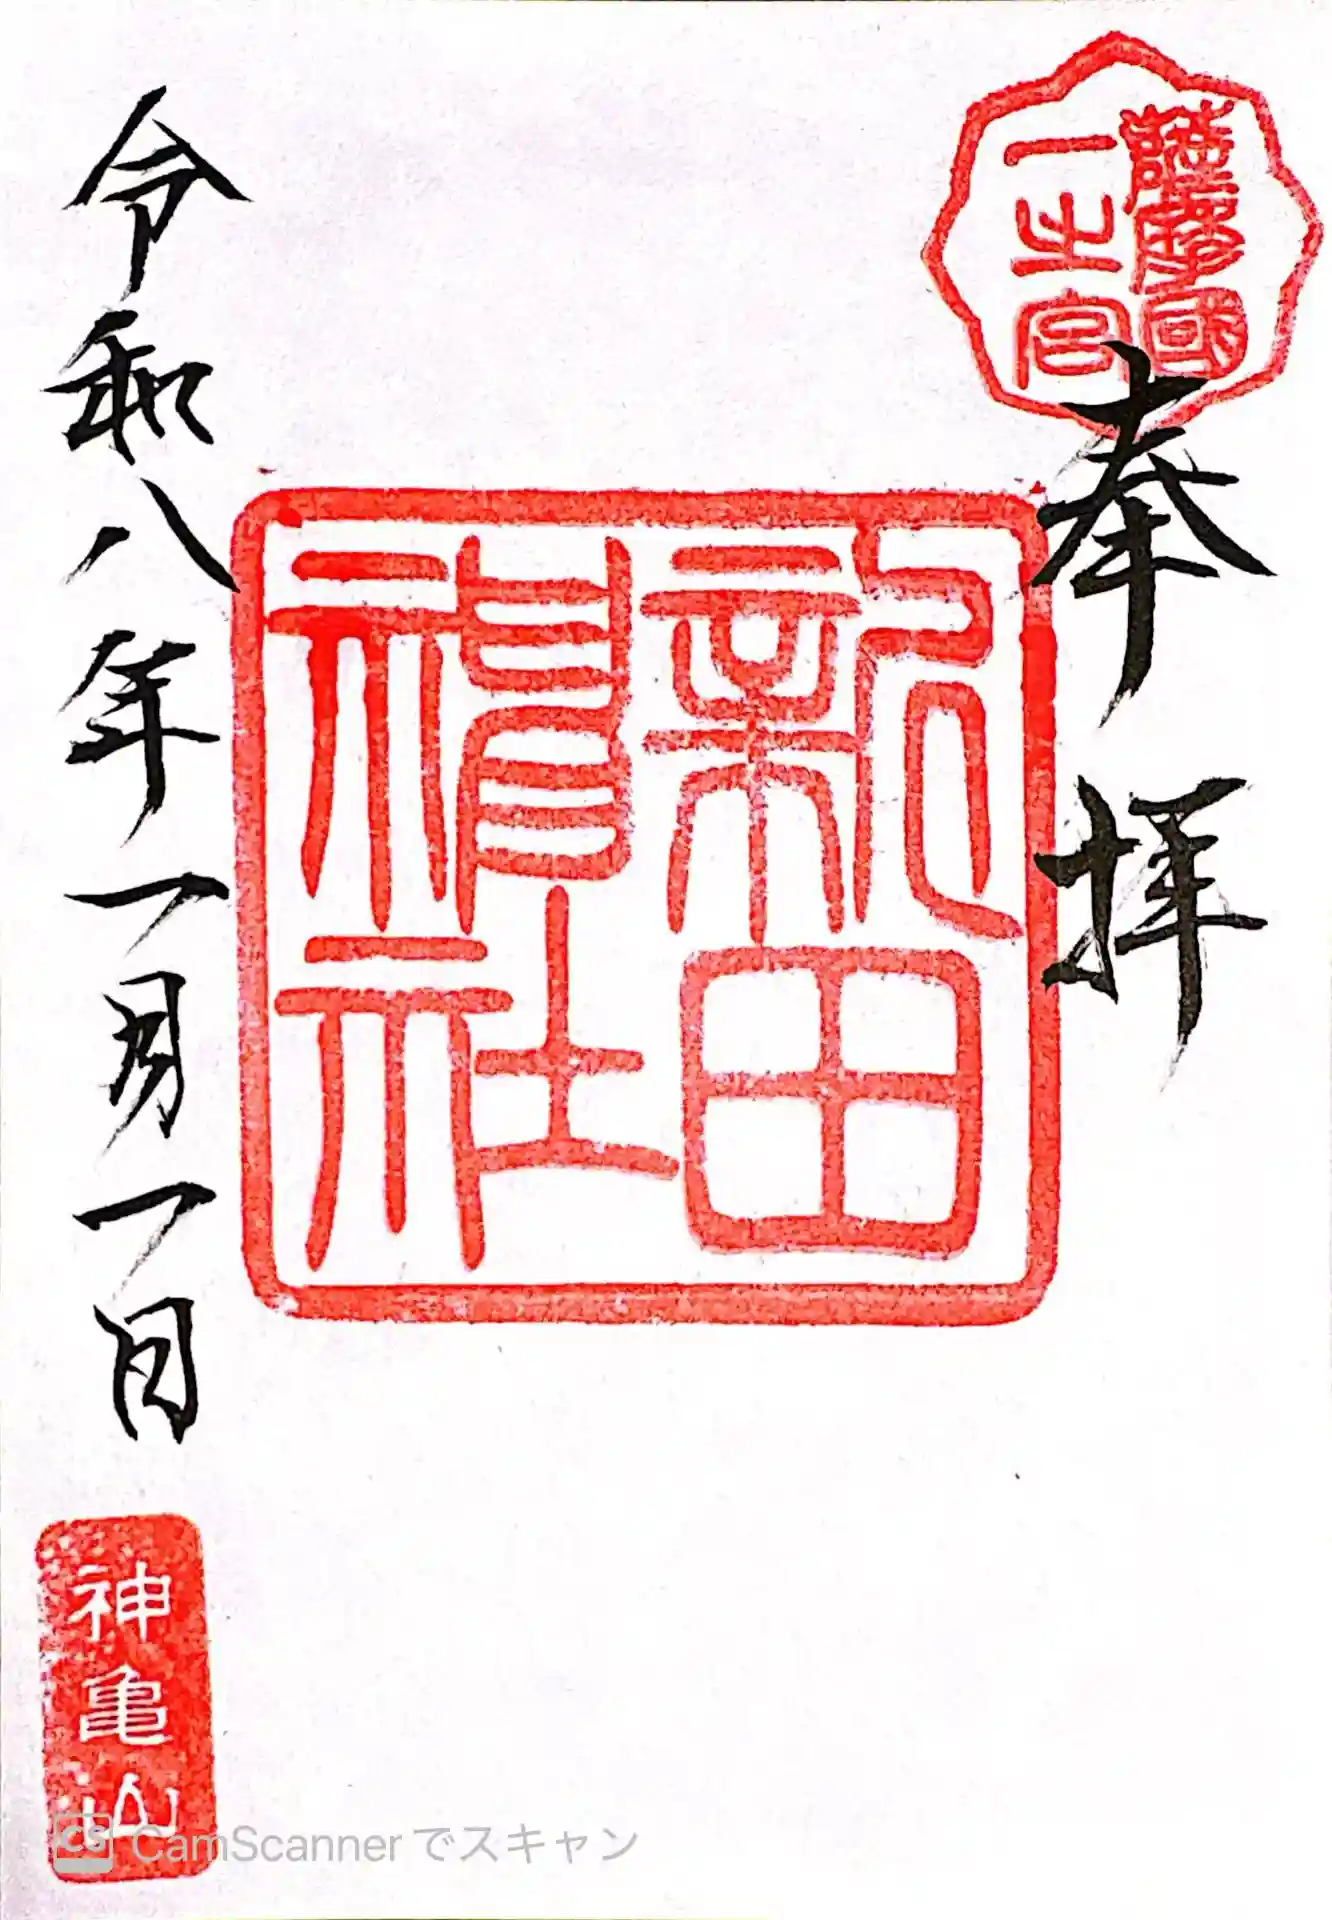 薩摩國
一之宮
奉拝
新田
神社
令和八年一月一日
神亀山
CS CamScannerでスキャン